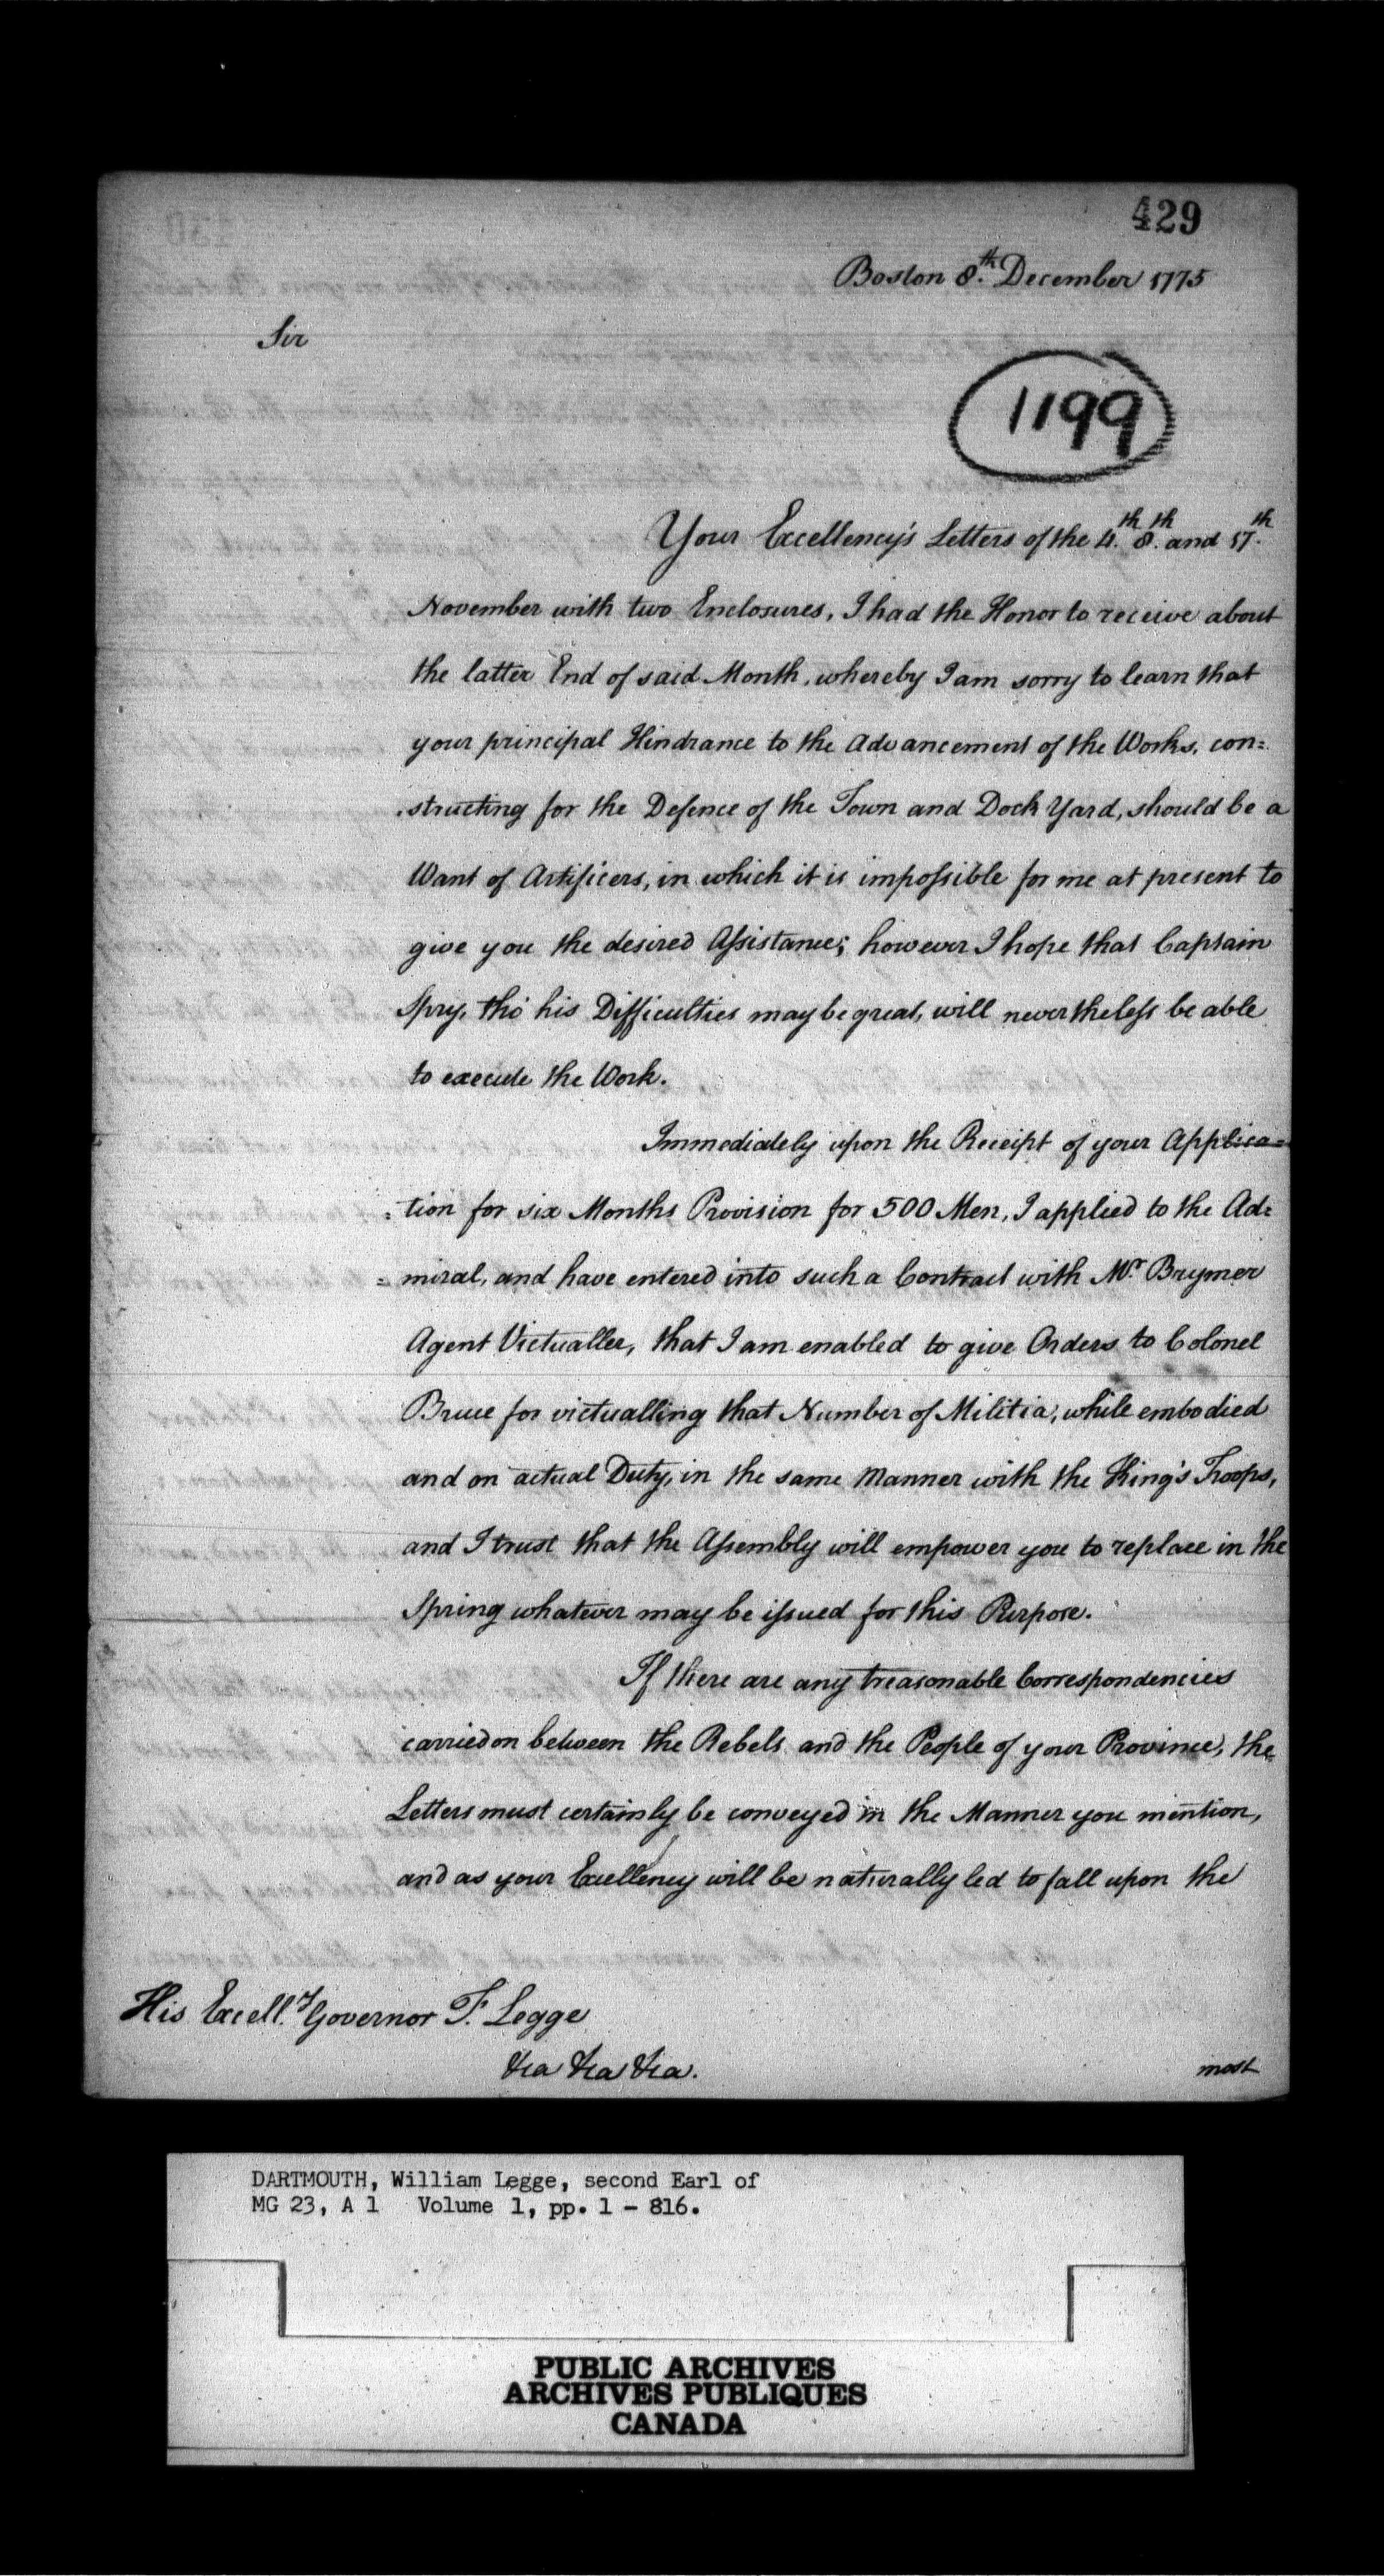 429
Boston 8.th December 1775
Sir
1199
Your Excellency's Letters of the 4.th 8.th and 17.th
November with two Enclosures, I had the Honor to receive about
the latter End of said Month, whereby I am sorry to learn that
your principal Hindrance to the Advancement of the Works, con=
structing for the Defence of the Town and Dock Yard, should be a
Want of Artificers, in which it is impossible for me at present to
give you the desired Assistance; however I hope that Captain
Spry, tho' his Difficulties may be great, will nevertheless be able
to execute the Work.
Immediately upon the Receipt of your Applica=
=tion for six Months Provision for 500 Men, I applied to the Ad=
=miral, and have entered into such a Contract with Mr. Brymer
Agent Victualler, that I am enabled to give Orders to Colonel
Bruce for victualling that Number of Militia, while embodied
and on actual Duty, in the same Manner with the King's Troops,
and I trust that the Assembly will empower you to replace in the
Spring whatever may be issued for this Purpose.
If there are any treasonable Correspondencies
carried on between the Rebels and the People of your Province, the
Letters must certainly be conveyed in the Manner you mention,
and as your Excellency will be naturally led to fall upon the
His Excell.y Governor F. Legge
&ca &ca &ca.
most
DARTMOUTH, William Legge, second Earl of
MG 23, A 1 Volume 1, pp. 1 - 816.
PUBLIC ARCHIVES
ARCHIVES PUBLIQUES
CANADA